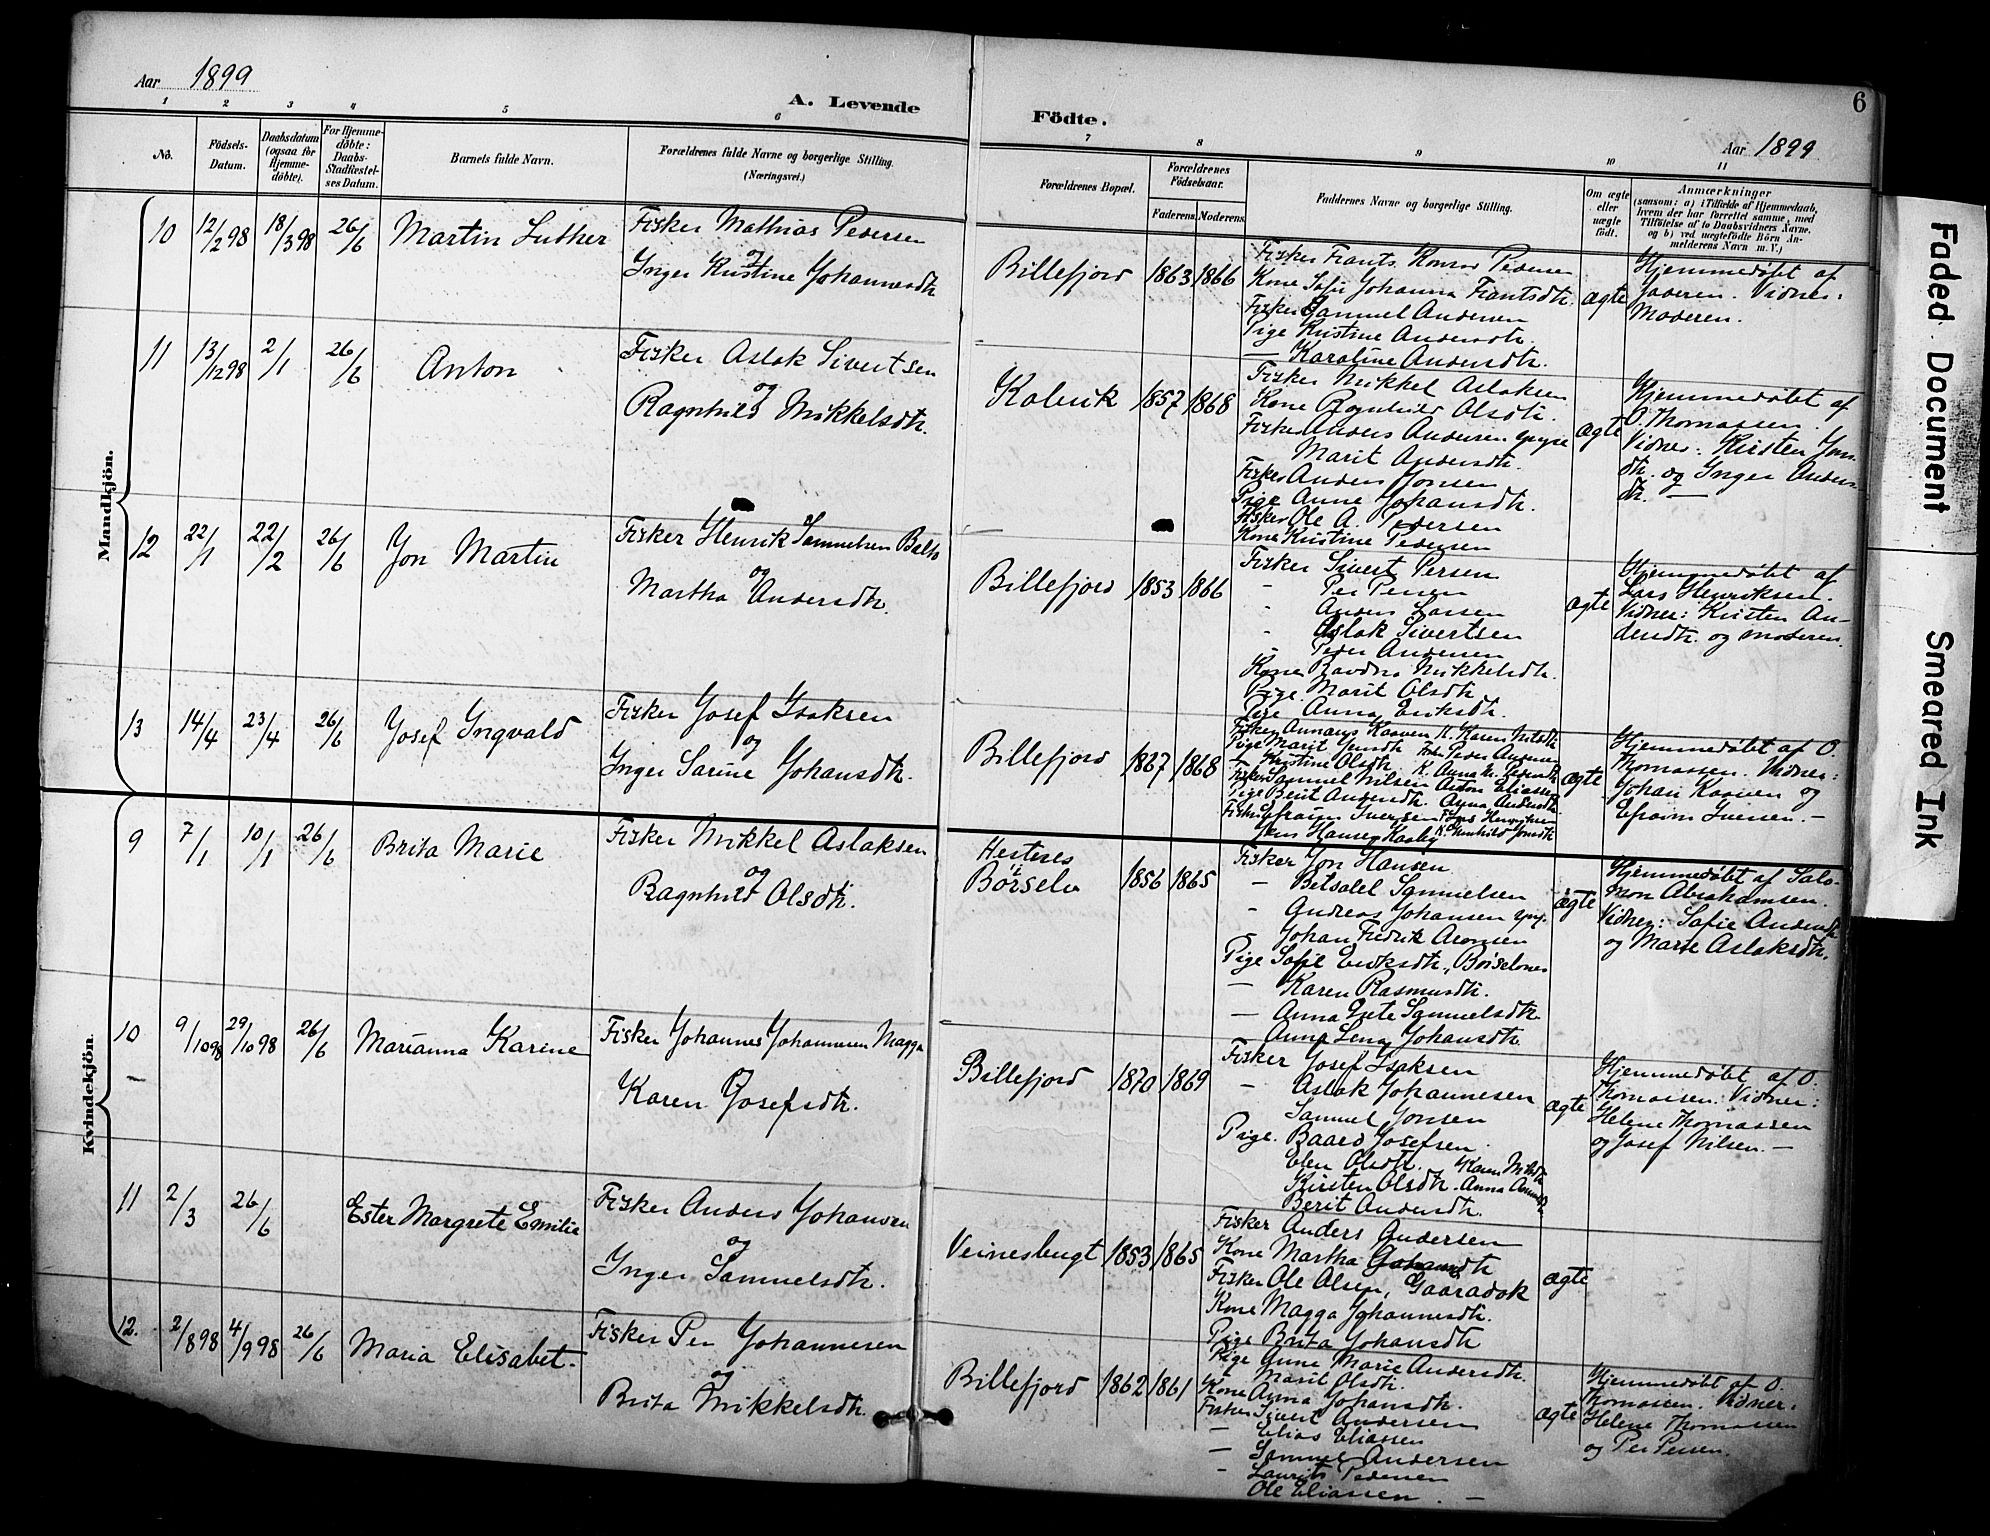 Aar 1899
A. Levende
Födte.
6
Aar 1899
1 2 3 4 5 6 7 8 9 10 11
No.
Födsels-
Datum.
Daabsdatum
(ogsaa for
Hjemme-
döbte).
For Hjemme-
döbte:
Daabs-
Stadfæstel-
ses Datum.
Barnets fulde Navn.
Forældrenes fulde Navne og borgerlige Stilling.
(Næringsvei.)
Forældrenes Bopæl.
Forældrenes
Födselsaar.
Faderens. Moderens.
Faddernes Navne og borgerlige Stilling.
Om ægte
eller
uægte
født.
Anmærkninger
(saasom: a) i Tilfælde af Hjemmedaab,
hvem der har forrettet samme, med
Tilföielse af to Daabsvidners Navne,
og b) ved uægtefödte Börn An-
melderens Navn m. V.)
Mandkjön.
10 12/2 98 18/3 98 26/6 Martin Luther
Fisker Mathias Pedersen
og
Inger Kristine Johannesdtr
Billefjord 1863 1866
Fisker Frants Konrad Pedersen
Kone Sofie Johanna Frantsdtr.
Fisker Samuel Andersen
Pige Kristine Andersdtr
— Karoline Andersdtr.
ægte
Hjemmedøbt af
Faderen. Vidner:
Moderen.
11 13/12 98 2/1 26/6 Anton
Fisker Aslak Sivertsen
og
Ragnhild Mikkelsdtr.
Kolvik 1857 1868
Fisker Mikkel Aslaksen
Kone Ragnhild Olsdtr.
Fisker Anders Andersen yngre
Marit Andersdtr.
Fisker Anders Jonsen
Pige Anne Johansdtr.
Fisker Ole A. Pedersen
Kone Kristine Pedersen
ægte
Hjemmedøbt af
O. Thomassen.
Vidner: Kirsten Jons-
dtr. og Inger Anders-
dtr. —
12 22/1 22/2 26/6 Jon Martin
Fisker Henrik Samuelsen Balto
og
Martha Andersdtr.
Billefjord 1853 1866
Fisker Sivert Persen
- Per Persen
- Anders Larsen
- Aslak Sivertsen
- Peder Andersen
Kone Ravdna Mikkelsdtr.
Pige Marit Olsdtr.
Pige Anna Eriksdtr.
ægte
Hjemmedøbt af
Lars Henriksen.
Vidner: Kirsten An-
dersdtr. og moderen.
13 14/4 23/4 26/6 Josef Ingvald
Fisker Josef Isaksen
og
Inger Sarine Johansdtr.
Billefjord 1867 1868
K. Karen Nilsdtr
Pige Marit Jonsdtr Peder Andersen
— Kristine Olsdtr.
Fisker Samuel Nilsen Anton Eliassen
Pige Berit Andersdtr. Anna Andersdtr.
Fisker Efraim Iversen
Jens Hansen Kaaby
ægte
Hjemmedøbt af O.
Thomassen. Vidner:
Johan Kaaven og
Efraim Iversen. —
Kvindekjön.
9 7/1 10/1 26/6 Brita Marie
Fisker Mikkel Aslaksen
og
Ragnhild Olsdtr.
Hestnes
i
Börselv 1856 1865
Fisker Jon Hansen
— Betsalel Samuelsen
- Andreas Johansen yng.
Johan Fredrik Aronsen
Pige Sofie Eriksdtr., Börselvnes
— Karen Rasmusdtr.
— Anna Grete Samuelsdtr
Anna Lena Johansdtr.
ægte
Hjemmedøbt af Salo-
mon Abrahamsen.
Vidner: Sofie Andersdtr
og Marie Aslaksdtr.
10 9/10 98 29/10 98 26/6 Marianna Karine
—
Fisker Johannes Johannesen Magga
og
Karen Josefsdtr.
Billefjord 1870 1869
Fisker Josef Isaksen
- Aslak Johannesen
Samuel Jonsen
Pige. Baard Josefsen
Elen Olsdtr. Karen Nilsdtr
Kirsten Olsdtr. Anna
Berit Andersdtr.
ægte
Hjemmedøbt af O.
Thomassen. Vidner:
Helene Thomassen
og Josef Nilsen. —
11 2/3 26/6 Ester Margrete Emilie
Fisker Anders Johansen
og
Inger Samuelsdtr.
Veinesbugt 1853 1865
Fisker Anders Andersen
Kone Martha
Fisker Ole Olsen, Gaaradak
Kone Magga Johannesdtr.
Pige Brita Johansdtr
ægte
12. 2/8 98 4/9 98 26/6 Maria Elisabet.
Fisker Per Johannesen
og
Brita Mikkelsdtr.
Billefjord 1862 1861
Pige Anne Marie Andersdtr.
Marit Olsdtr.
Kone Anna Johansdtr.
Fisker Sivert Andersen
— Elias Eliassen
— Samuel Andersen
- Laurits Pedersen
Ole Eliassen. —
ægte
Hjemmedøbt af O.
Thomassen. Vidner:
Helene Thomassen
og Per Persen.
Faded Document
Smeared Ink